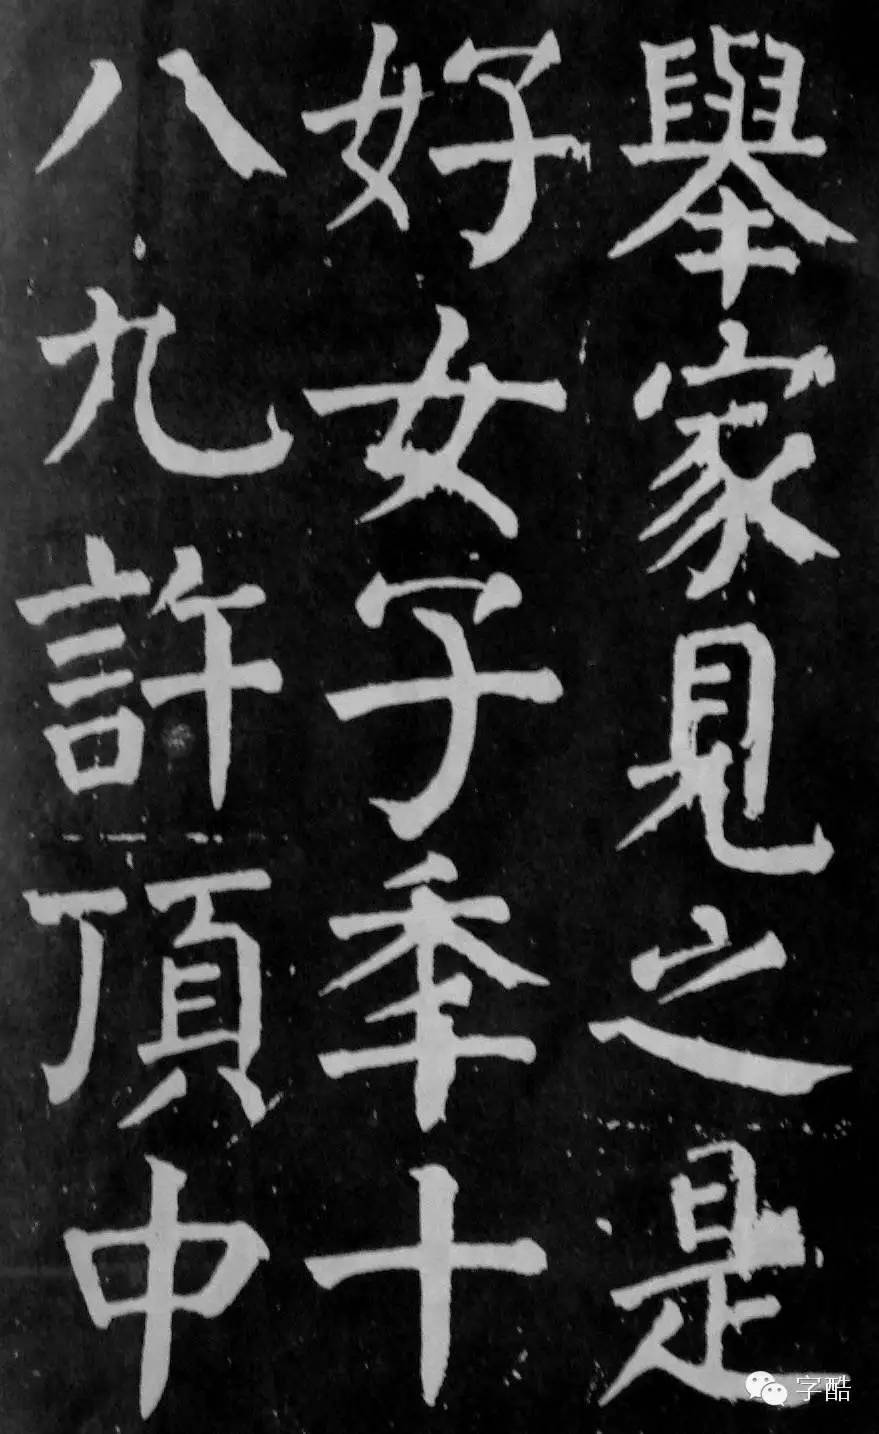 舉家見之是
好女子秊十
八九許頂中
字酷